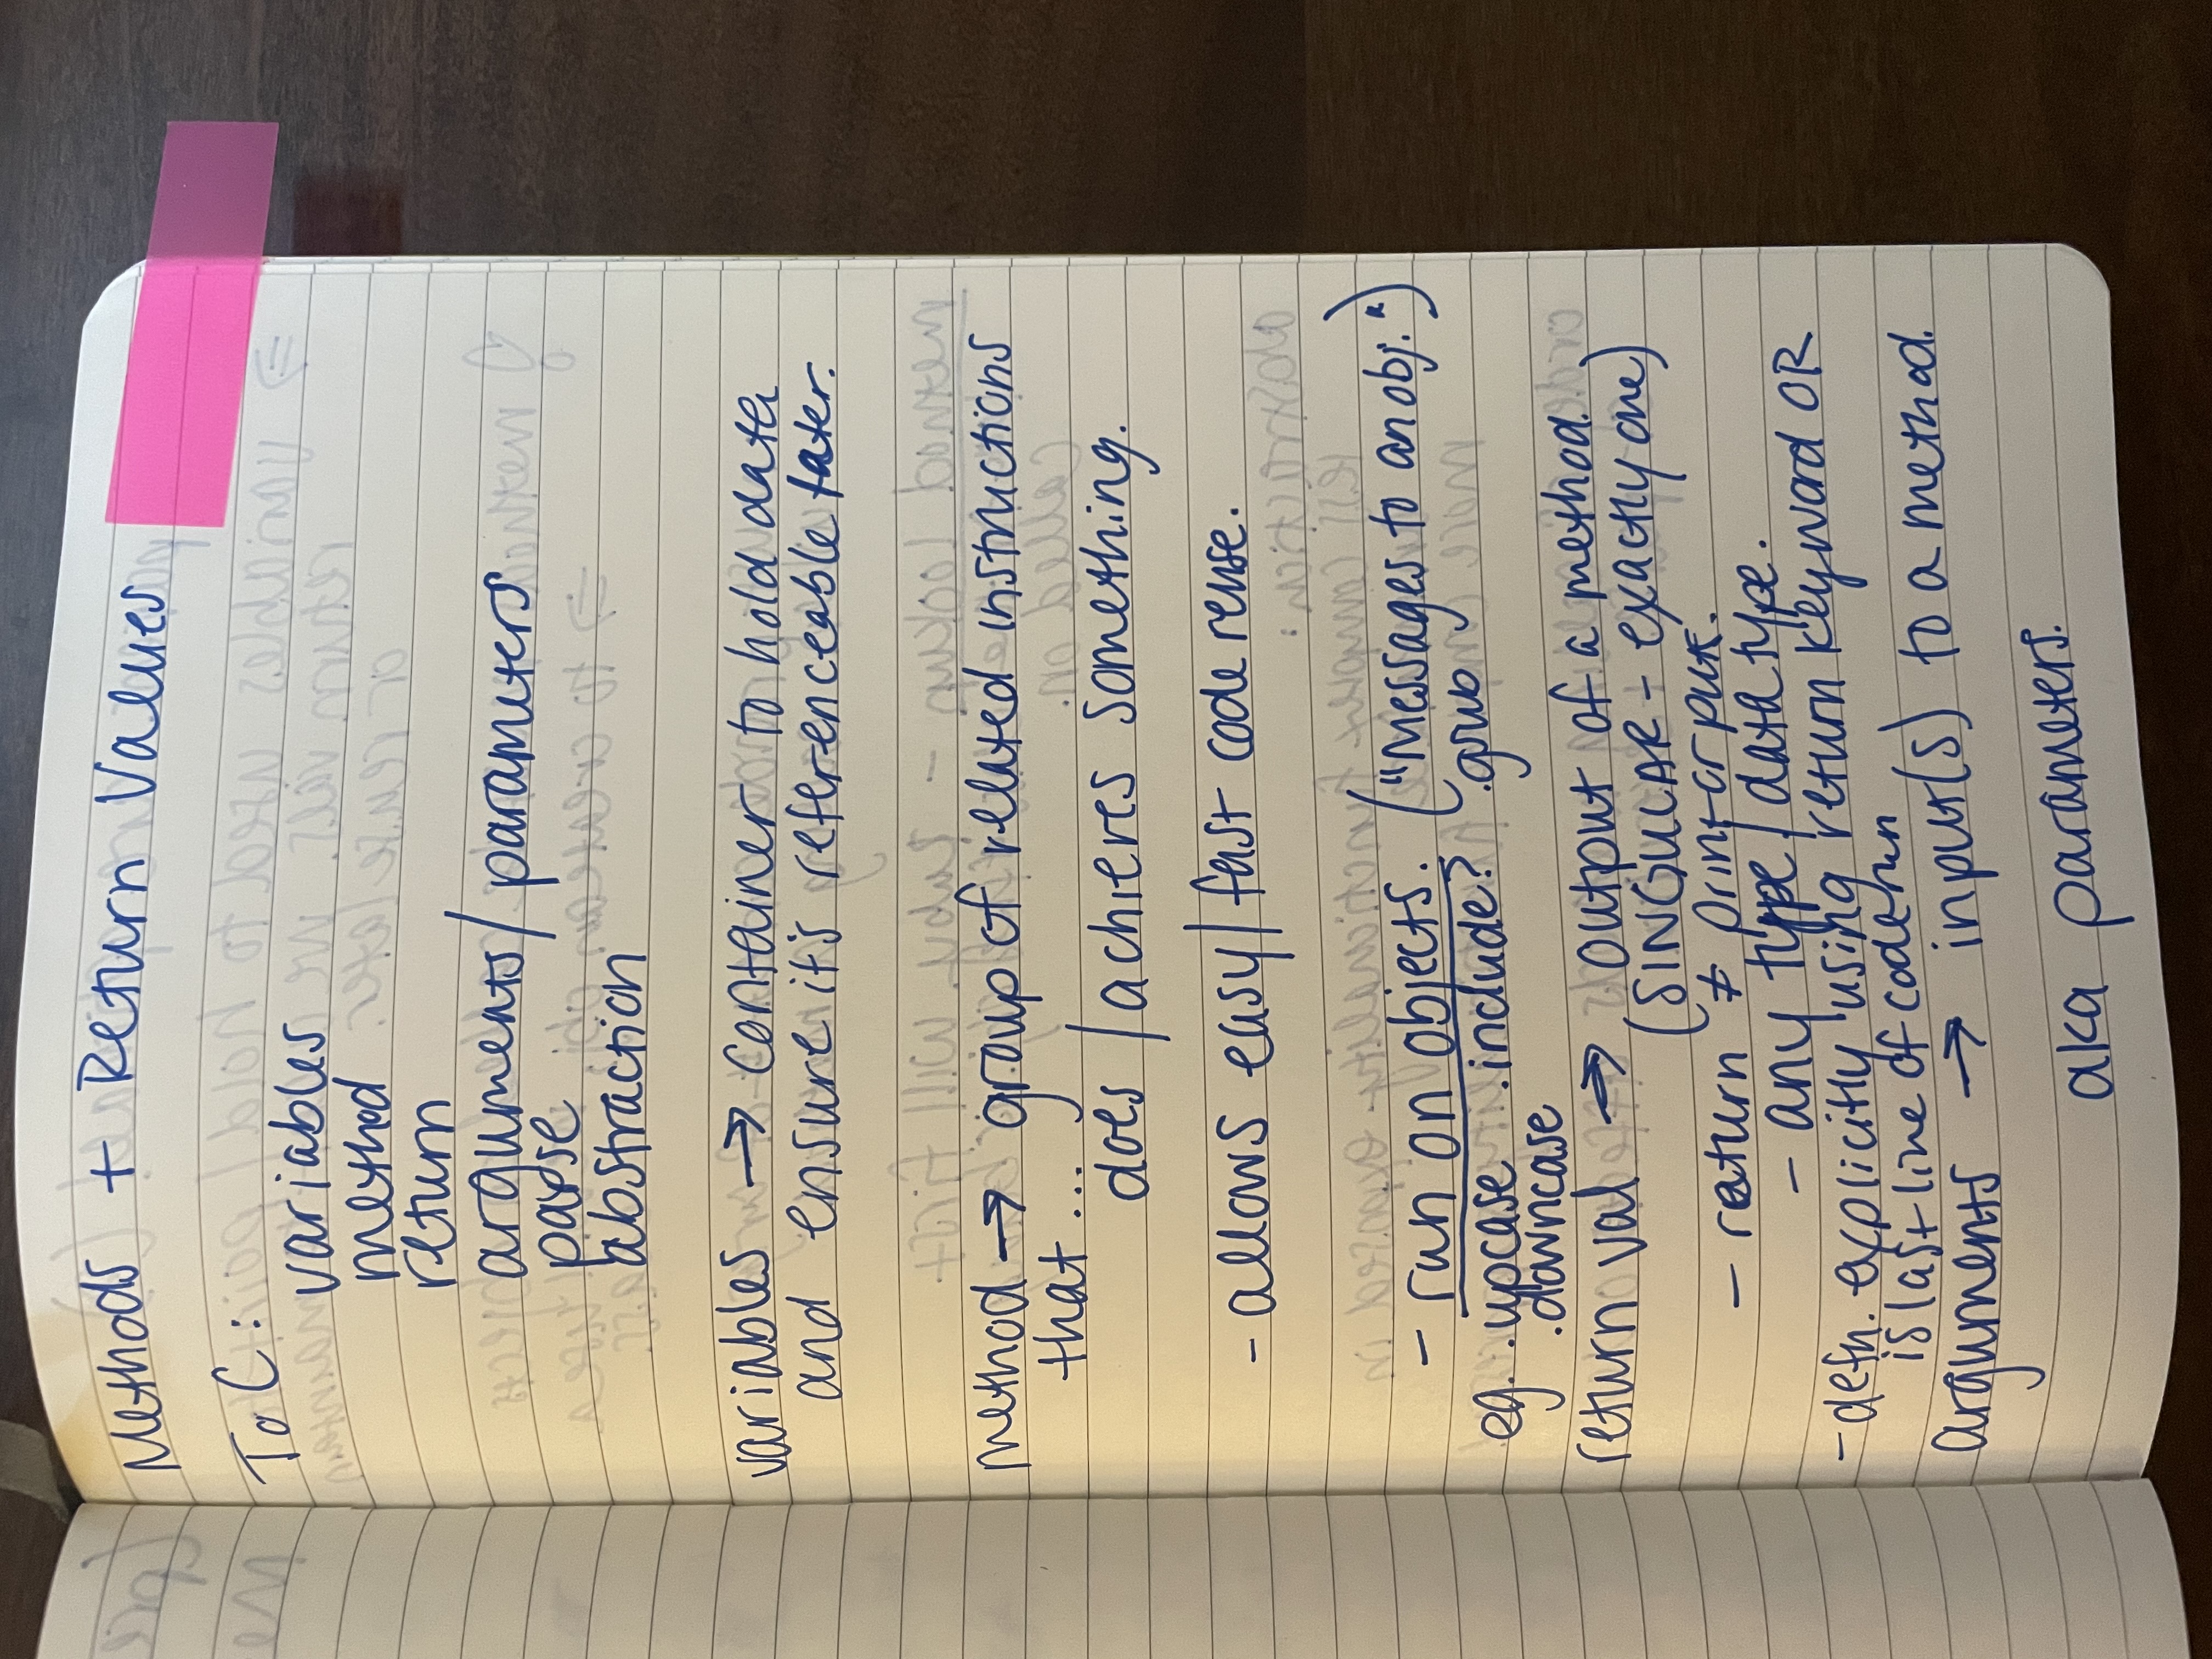 Methods + Return Values
ToC:
variables
method
return
arguments/parameters
parse
abstraction
variables → container to hold data
and ensure it's referenceable later.
method → group of related instructions
that...
does/achieves something.
- allows easy/fast code reuse.
- run on objects. ("Messages to an obj.")
eg. .upcase .include? .grub
.downcase
return val → output of a method.
(SINGULAR - exactly one)
- return ≠ print or puts.
- any type/data type.
- defn. explicitly using return keyword OR
is last line of code run
arguments → input(s) to a method.
aka parameters.